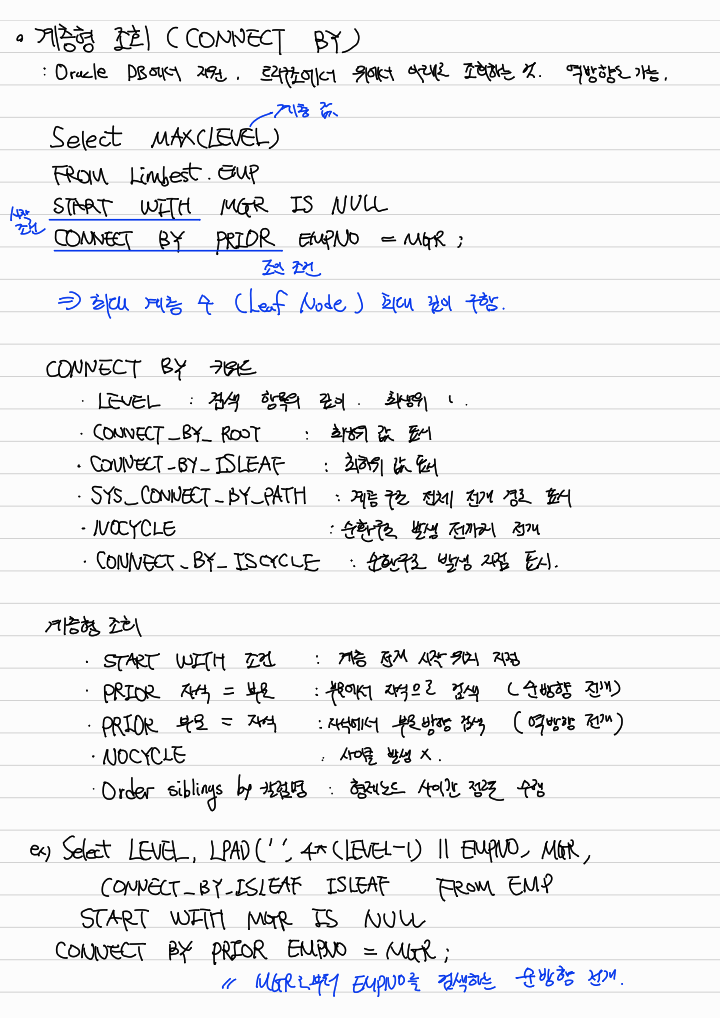 • 계층형 조회 (CONNECT BY)
: Oracle DB에서 지원. 트리구조에서 위에서 아래로 조회하는 것. 역방향도 가능.
계층 값
Select MAX(LEVEL)
FROM Limbest.EMP
START WITH MGR IS NULL
시작 조건
CONNECT BY PRIOR EMPNO = MGR;
조인 조건
⇒ 최대 계층 수 (Leaf Node) 최대 깊이 구함.
CONNECT BY 키워드
· LEVEL : 검색 항목의 깊이. 최상위 1.
· CONNECT_BY_ROOT : 최상위 값 표시
· CONNECT_BY_ISLEAF : 최하위 값 표시
· SYS_CONNECT_BY_PATH : 계층 구조 전체 전개 경로 표시
· NOCYCLE : 순환구조 발생 전까지 전개
· CONNECT_BY_ISCYCLE : 순환구조 발생 지점 표시.
계층형 조회
· START WITH 조건 : 계층 전개 시작 위치 지정
· PRIOR 자식 = 부모 : 부모에서 자식으로 검색 (순방향 전개)
· PRIOR 부모 = 자식 : 자식에서 부모방향 검색 (역방향 전개)
· NOCYCLE : 사이클 발생 X.
· Order siblings by 칼럼명 : 형제노드 사이간 정렬 수행
ex) Select LEVEL, LPAD(' ', 4*(LEVEL-1) || EMPNO, MGR,
CONNECT_BY_ISLEAF ISLEAF FROM EMP
START WITH MGR IS NULL
CONNECT BY PRIOR EMPNO = MGR;
// MGR로부터 EMPNO를 검색하는 순방향 전개.